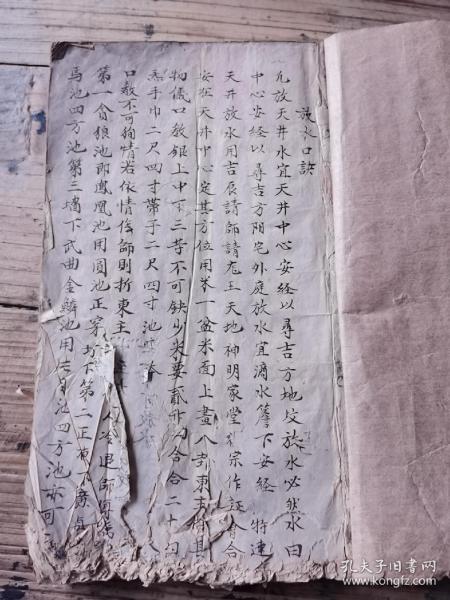 放水口訣
凡放天井水宜天井中心安経以尋吉方地坟放水必然水口
中心安経以尋吉方阳宅外庭放水宜滴水簷下安経 特達
天井放水用吉辰請師請龙王天地神明家堂祖宗作証會合
安在天井中心定其方位用米一盆米面上畫八卦東主備具
物儀口教銀上中下三等不可缺少米要貳升 合合二十四
手巾二尺四寸帶子二尺四寸池
口教不可狥情若依情 師則折東主 退師
第一貪狼池即鳳凰池用圓池正 下第二
馬池四方池第三壋下武曲金 池用 池四方池亦可
孔夫子旧书网
www.kongfz.com